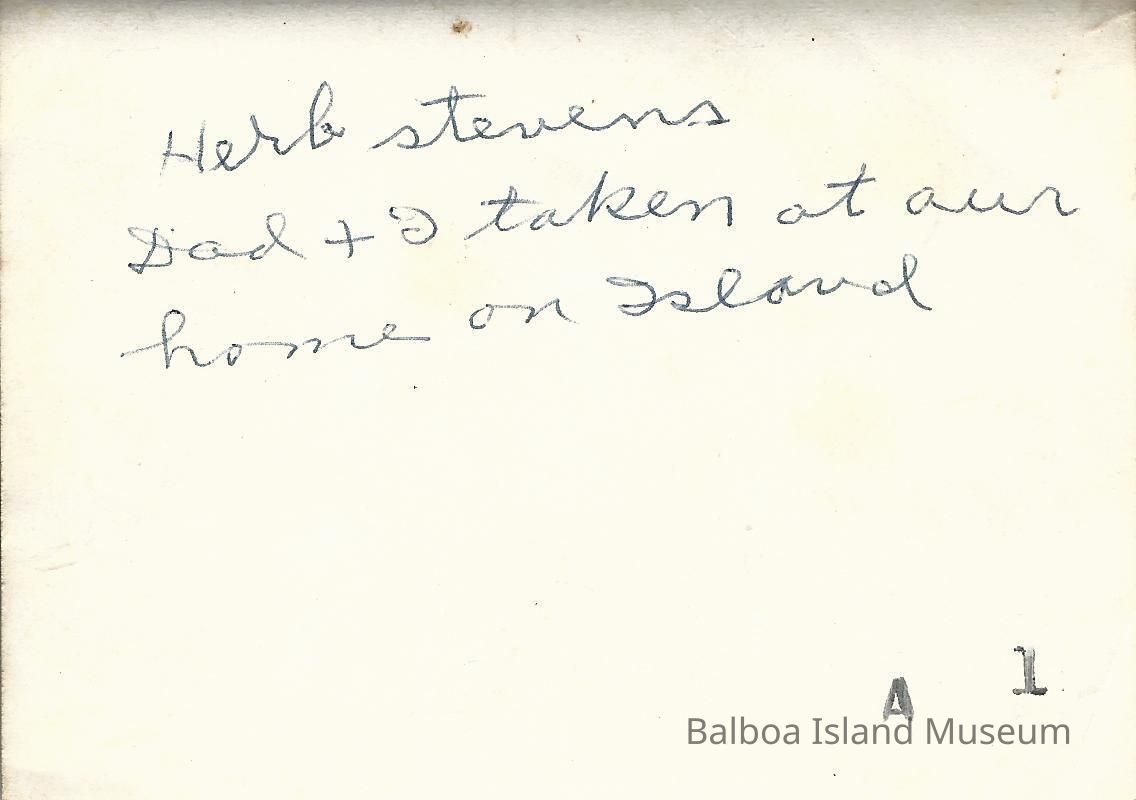 Herb stevens
Dad + I taken at our
home on Island
A 1
Balboa Island Museum